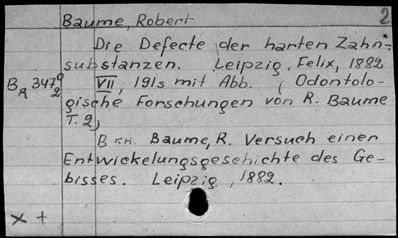 Baume, Robert 2
Die Defecte der harten Zahn=
substanzen. Leipzig, Felix, 1882
BR 347⁰2 VII, 191s mit Abb. (Odontolo-
gische Forschungen von R. Baume
T. 2)
B кн. Baume, R. Versuch einer
Entwickelungsgeschichte des Ge-
bisses. Leipzig, 1882.
x +